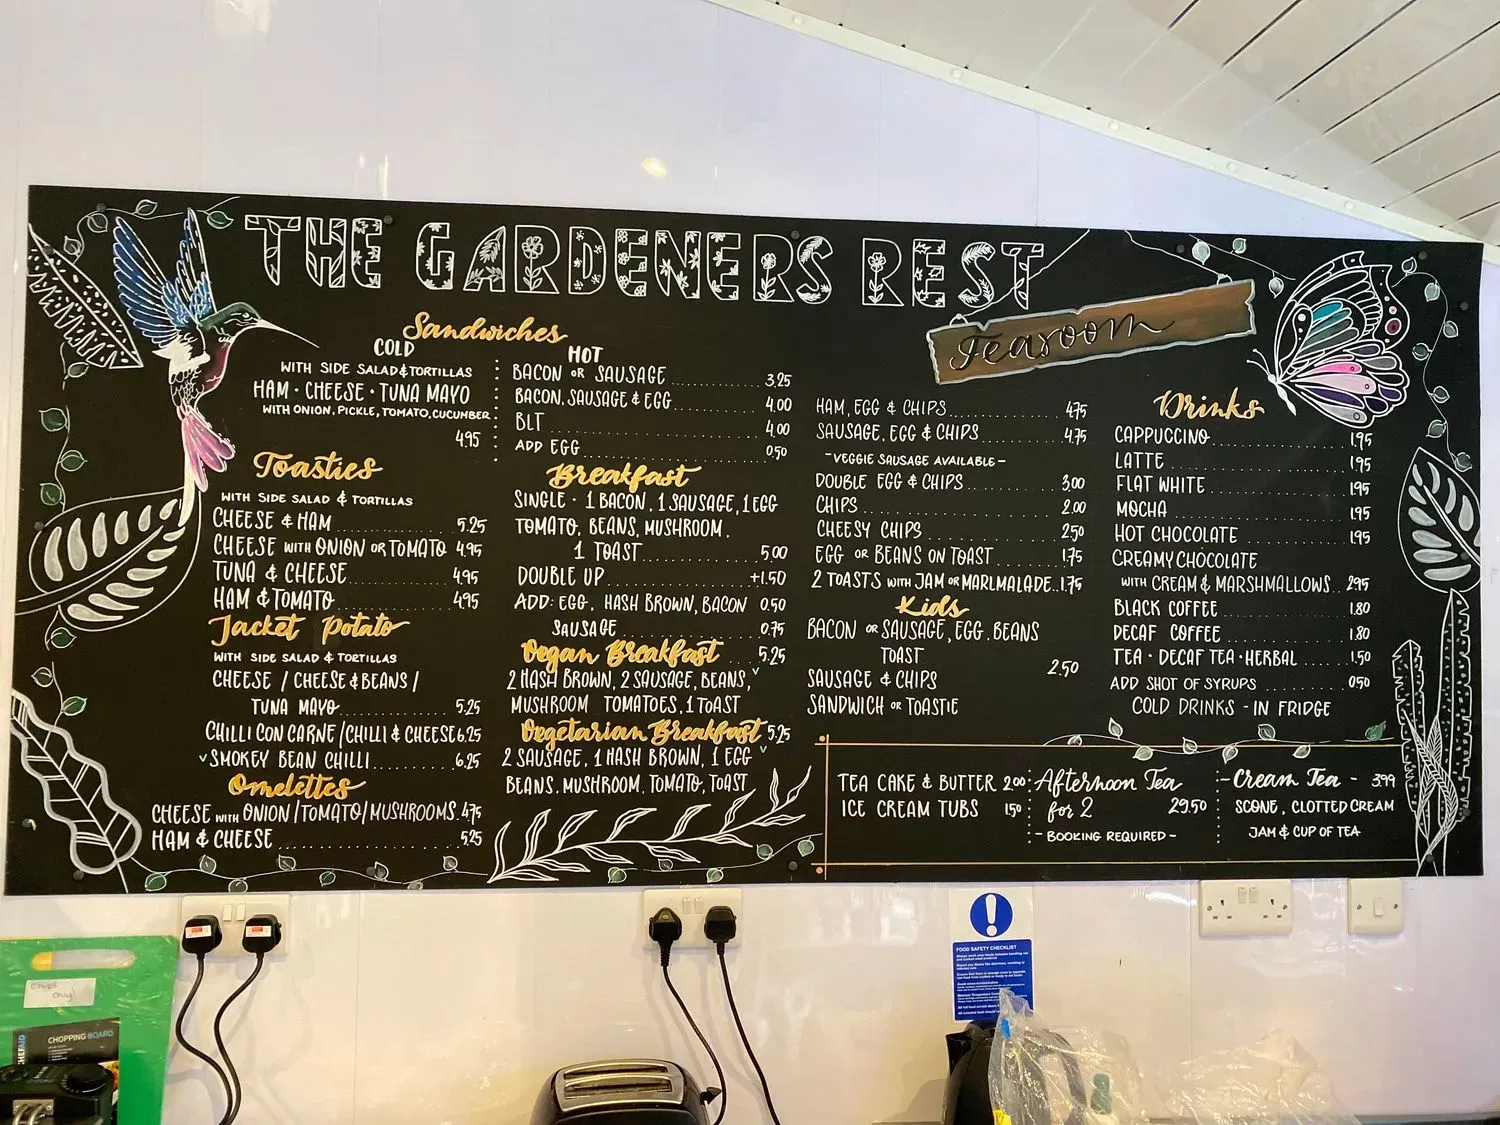 THE GARDENERS REST
Tearoom
Sandwiches
COLD
WITH SIDE SALAD & TORTILLAS
HAM · CHEESE · TUNA MAYO
WITH ONION, PICKLE, TOMATO, CUCUMBER
4.95
HOT
BACON OR SAUSAGE 3.25
BACON, SAUSAGE & EGG 4.00
BLT 4.00
ADD EGG 0.50
Toasties
WITH SIDE SALAD & TORTILLAS
CHEESE & HAM 5.25
CHEESE WITH ONION OR TOMATO 4.95
TUNA & CHEESE 4.95
HAM & TOMATO 4.95
Jacket Potato
WITH SIDE SALAD & TORTILLAS
CHEESE / CHEESE & BEANS /
TUNA MAYO 5.25
CHILLI CON CARNE / CHILLI & CHEESE 6.25
V SMOKEY BEAN CHILLI 6.25
Omelettes
CHEESE WITH ONION / TOMATO / MUSHROOMS 4.75
HAM & CHEESE 5.25
Breakfast
SINGLE · 1 BACON, 1 SAUSAGE, 1 EGG
TOMATO, BEANS, MUSHROOM,
1 TOAST 5.00
DOUBLE UP +1.50
ADD: EGG, HASH BROWN, BACON 0.50
SAUSAGE 0.75
Vegan Breakfast 5.25
2 HASH BROWN, 2 SAUSAGE, BEANS, V
MUSHROOM TOMATOES, 1 TOAST
Vegetarian Breakfast 5.25
2 SAUSAGE, 1 HASH BROWN, 1 EGG V
BEANS, MUSHROOM, TOMATO, TOAST
HAM, EGG & CHIPS 4.75
SAUSAGE, EGG & CHIPS 4.75
- VEGGIE SAUSAGE AVAILABLE -
DOUBLE EGG & CHIPS 3.00
CHIPS 2.00
CHEESY CHIPS 2.50
EGG OR BEANS ON TOAST 1.75
2 TOASTS WITH JAM OR MARLMALADE 1.75
Kids
BACON OR SAUSAGE, EGG, BEANS
TOAST
2.50
SAUSAGE & CHIPS
SANDWICH OR TOASTIE
Drinks
CAPPUCCINO 1.95
LATTE 1.95
FLAT WHITE 1.95
MOCHA 1.95
HOT CHOCOLATE 1.95
CREAMY CHOCOLATE
WITH CREAM & MARSHMALLOWS 2.95
BLACK COFFEE 1.80
DECAF COFFEE 1.80
TEA · DECAF TEA · HERBAL 1.50
ADD SHOT OF SYRUPS 0.50
COLD DRINKS - IN FRIDGE
TEA CAKE & BUTTER 2.00
ICE CREAM TUBS 1.50
Afternoon Tea
for 2 29.50
- BOOKING REQUIRED -
- Cream Tea - 3.99
SCONE, CLOTTED CREAM
JAM & CUP OF TEA
Chips
only!
CHOPPING BOARD
FOOD SAFETY CHECKLIST